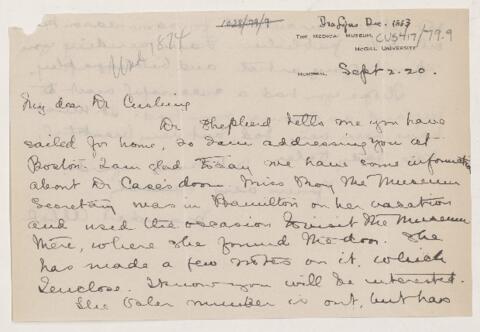 1028/79/9
Dra Gyns Dec. 1883
THE MEDICAL MUSEUM, CUS417/79.9
MCGILL UNIVERSITY
MONTREAL. Sept 2. 20.
1874
My dear Dr Cushing
Dr Shepherd tells me you have
sailed for home, so I am addressing you at
Boston. I am glad to say we have some information
about Dr Case's door. Miss the Museum
Secretary was in Hamilton on her vacation
and used the occasion to visit the Museum
there, where she found the door. She
has made a few notes on it, which
I enclose. I know you will be interested.
The Osler number is out, but has